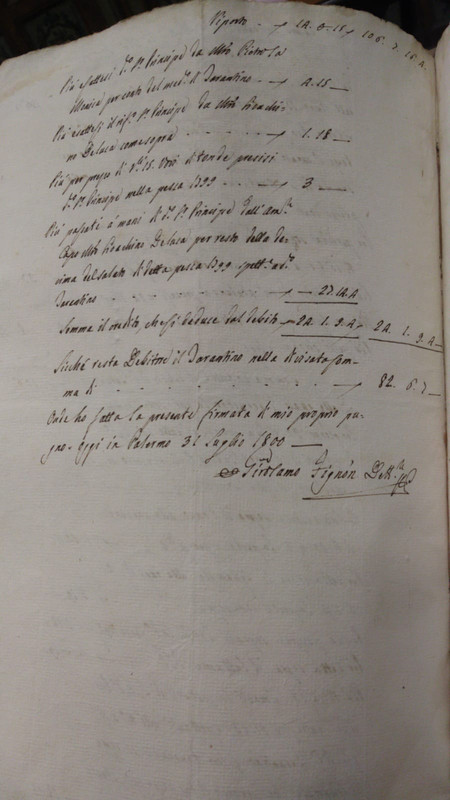 Riporto - 14. 6. 15 106. 7. 16. 4
Più esattesi d.º Sr. Principe da Mro Pietro La
Monica per conto del med.º di Tarantino - 4. 15 —
Più esattesi il rifº Sr. Principe da Mro Gioachi-
no DeLuca come sopra - - - - 1. 18 —
Più per prezzo di 15. di tonde presisi
d.º Sr. Principe nella pesca 1799 - - - 3 —
Più passati à mani di d.º Sr. Principe dall'
Capo Mro Gioachino DeLuca per resto della de-
cima del salato di detta pesca 1799 spett.e ad.º
Tarantino - - - - - — 27. 14. 4
Somma il credito che si deduce dal debito - 24. 1. 9. 4 24. 1. 9. 4
Sicché resta Debitore il Tarantino nella divisata som-
ma di - - - - - - 82. 6. 7 —
Onde ho fatta la presente firmata di mio proprio pu-
gno. oggi in Palermo 31 Luglio 1800 —
Girolamo